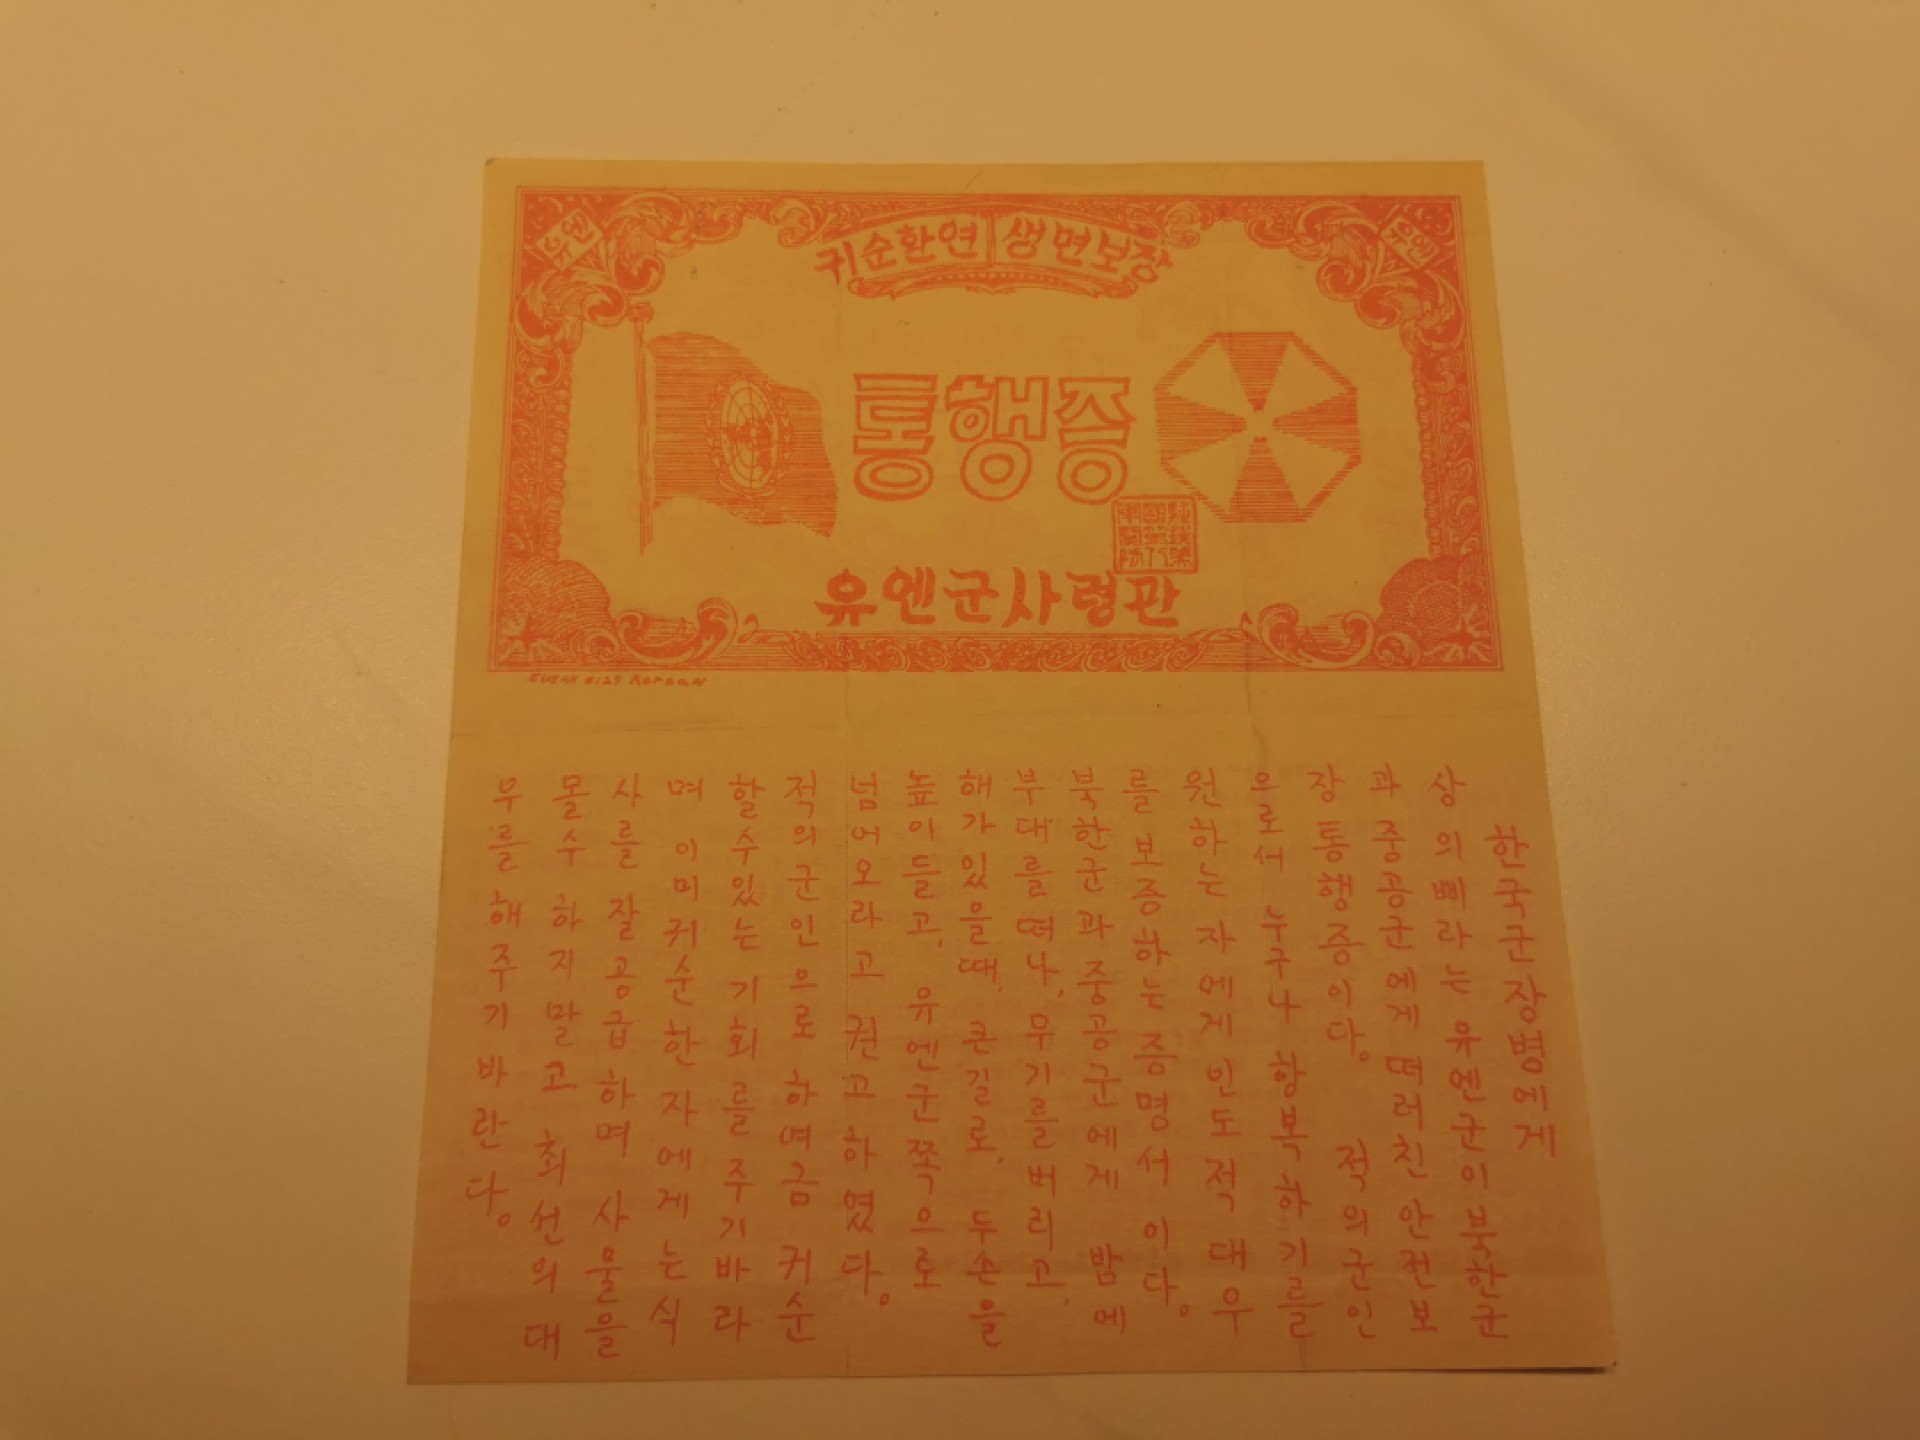 유엔
유엔
귀순환연 생명보장
통행증
유엔군사령관
EUSAK 8125 KOREAN
한국군장병에게
상의삐라는 유엔군이북한군
과중공군에게 떠러친 안전보
장통행증이다. 적의군인
으로서 누구나 항복하기를
원하는 자에게 인도적 대우
를 보증하는 증명서이다.
북한군과중공군에게 밤에
부대를떠나, 무기를버리고,
해가있을때, 큰길로, 두손을
높이들고, 유엔군쪽으로
넘어오라고 권고하였다.
적의군인으로 하여금 귀순
할수있는 기회를 주기바라
며 이미귀순한자에게는식
사를 잘공급하며 사물을
몰수하지말고 최선의대
우를해주기바란다.